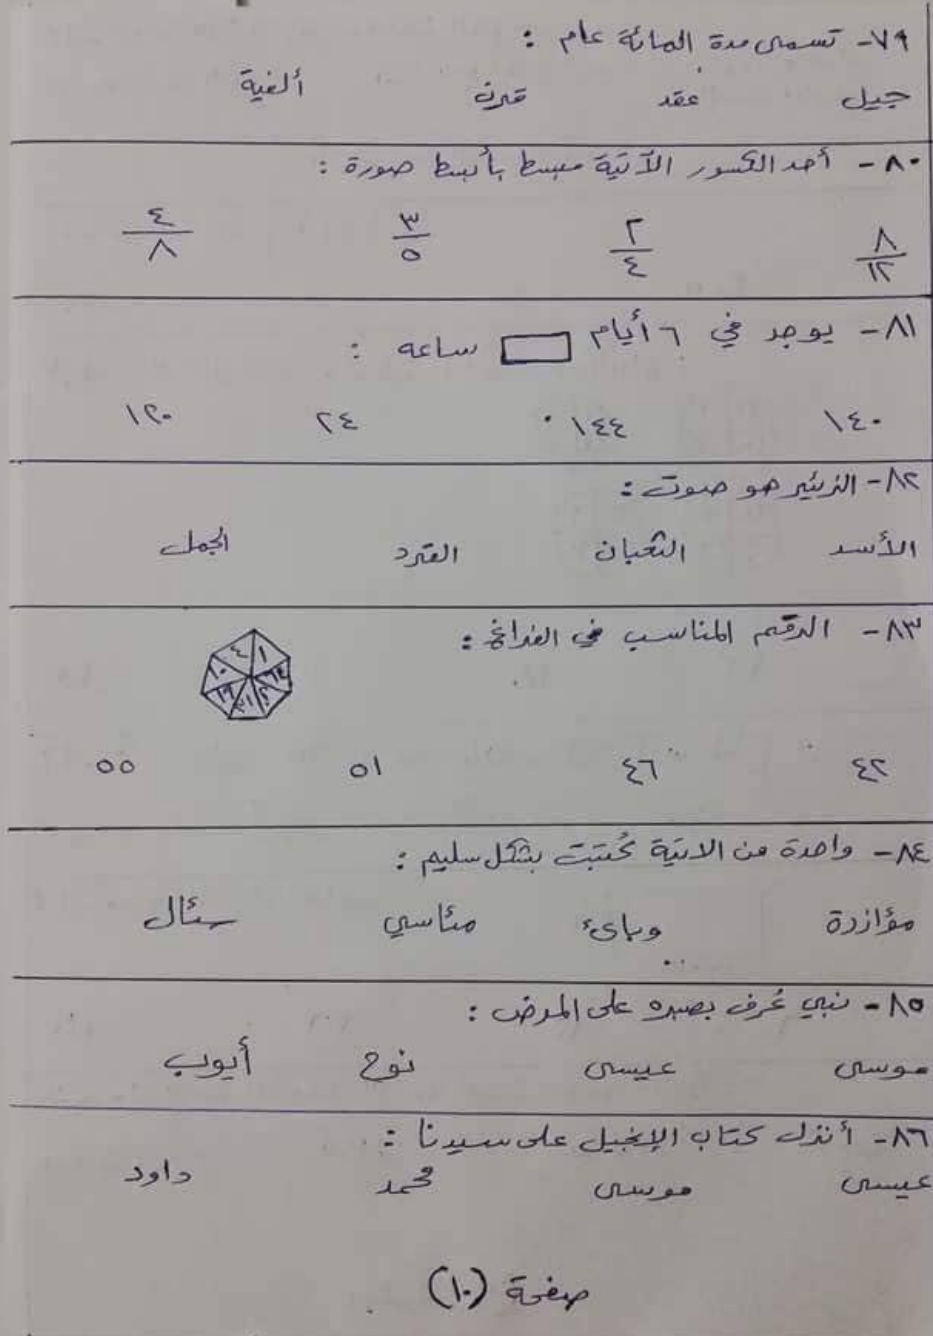 ٧٩- تسمى مدة المائة عام :
جيل عقد قرن ألفية
٨٠- أحد الكسور الآتية مبسط بأبسط صورة :
٨/١٢ ٢/٤ ٣/٥ ٤/٨
٨١- يوجد في ٦ أيام ساعه :
١٤٠ ١٤٤ ٢٤ ١٢٠
٨٢- الزئير هو صوت :
الأسد الثعبان القرد الجمل
٨٣- الرقم المناسب في الفراغ :
١ ٤ ١٠ ١٩ ٣١ ؟ ٦٤
٤٢ ٤٦ ٥١ ٥٥
٨٤- واحدة من الاتية كُتبت بشكل سليم :
مؤازرة وباىء مئاسي سئال
٨٥- نبي عُرف بصبره على المرض :
موسى عيسى نوح أيوب
٨٦- أنزل كتاب الإنجيل على سيدنا :
عيسى موسى محمد داود
صفحة (١٠)